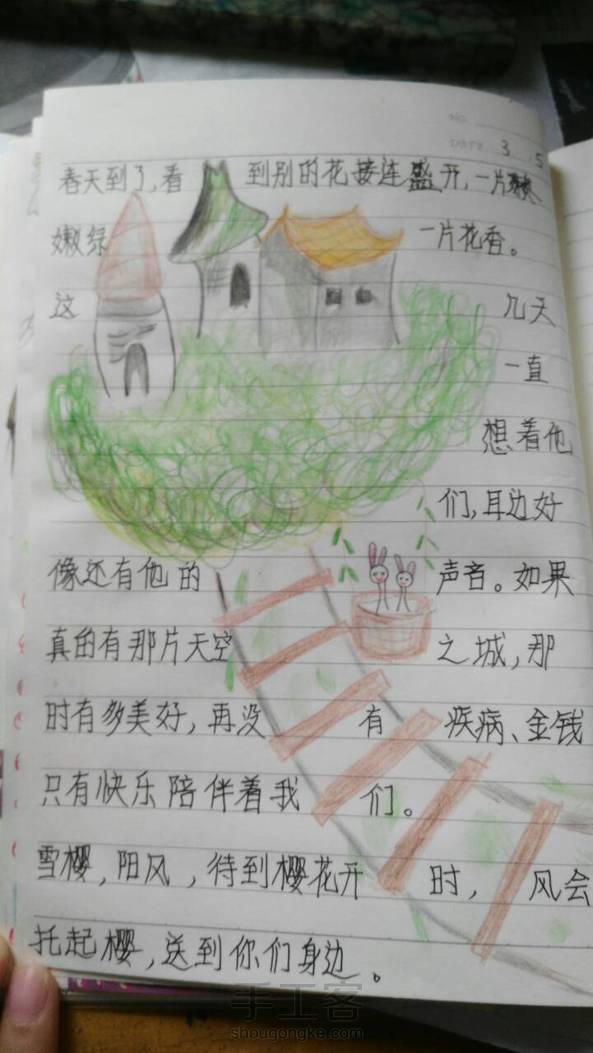 NO.
DATE 3.5
春天到了,看到别的花接连盛开,一片
嫩绿一片花香。
这几天
一直
想着他
们,耳边好
像还有他的声音。如果
真的有那片天空之城,那
时有多美好,再没有疾病、金钱
只有快乐陪伴着我们。
雪樱,阳风,待到樱花开时,风会
托起樱,送到你们身边。
手工客
shougongke.com